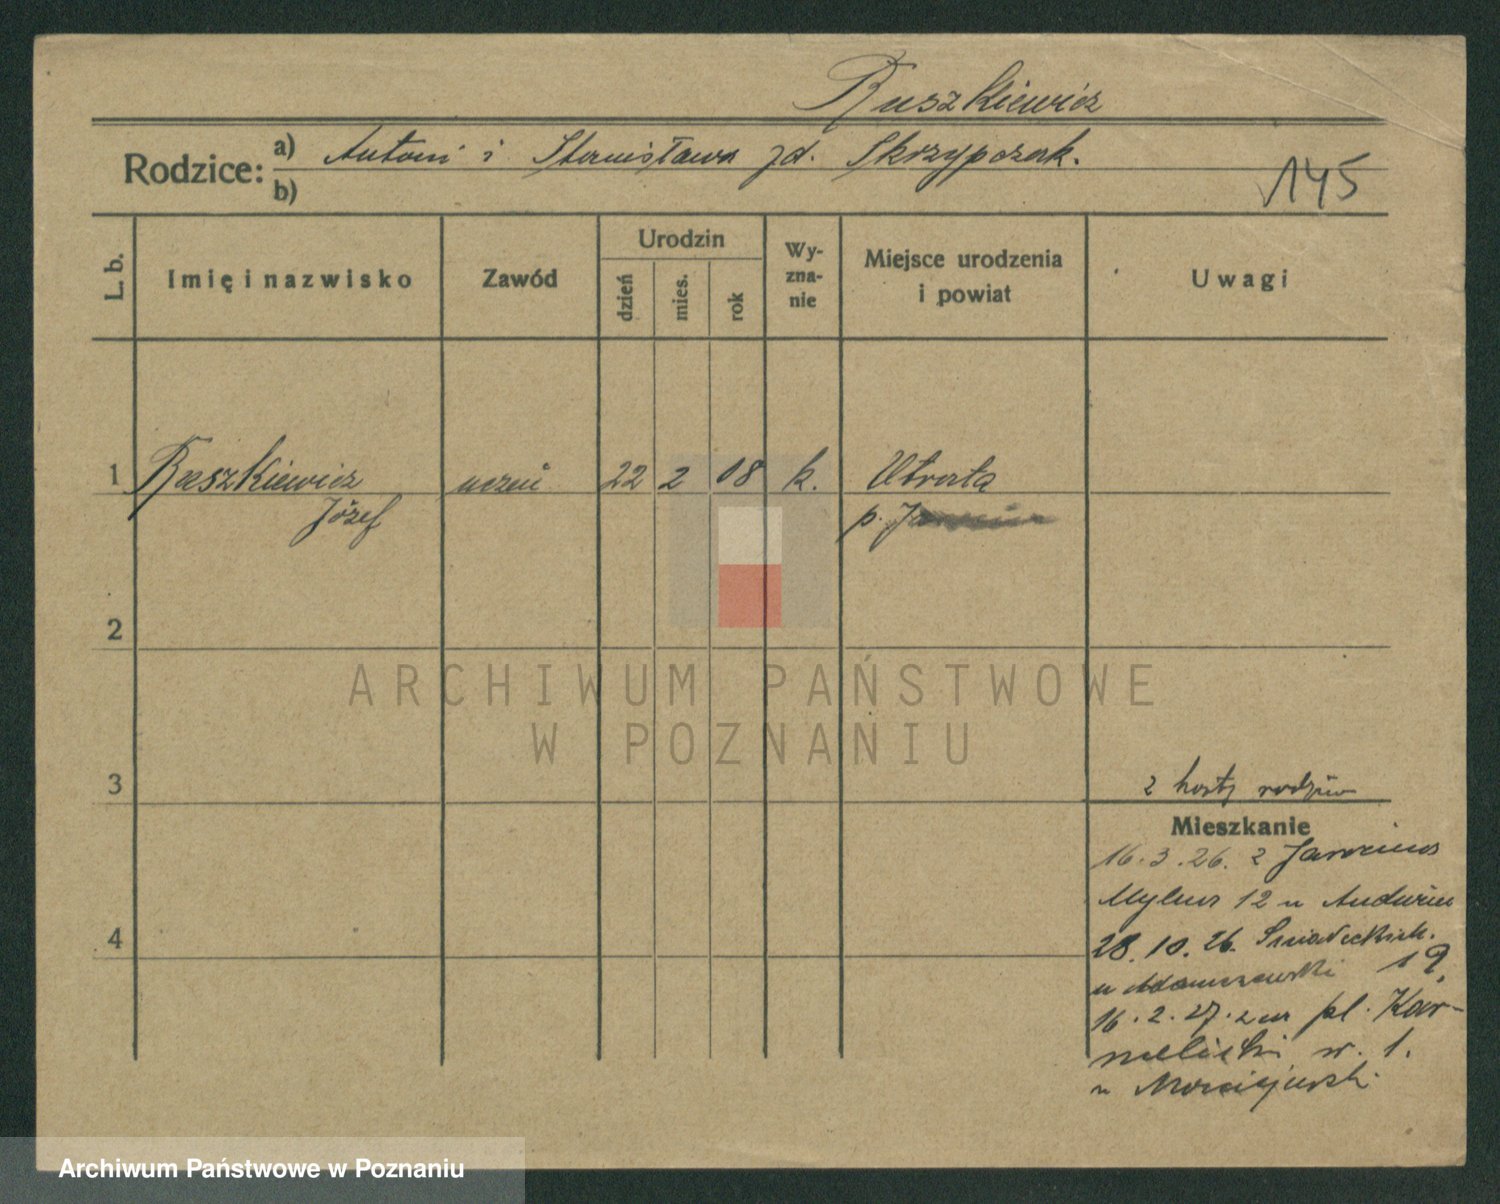 Ruszkiewicz
Rodzice: a) Antoni i Stanisława zd. Skrzypczak.
b)
145
L. b.
Imię i nazwisko
Zawód
Urodzin
dzień
mies.
rok
Wy-
zna-
nie
Miejsce urodzenia
i powiat
Uwagi
1 Ruszkiewicz uczeń 22 2 08 k. Utrata
Józef p.
2
ARCHIWUM PAŃSTWOWE
W POZNANIU
3
z karty rodziców
Mieszkanie
16.3.26. z Jarocina
12 u
4
28.10.26. Śniadeckich.
u Adamczewski 19.
16.2.27. na pl. Kar-
melicki nr. 1.
u
Archiwum Państwowe w Poznaniu